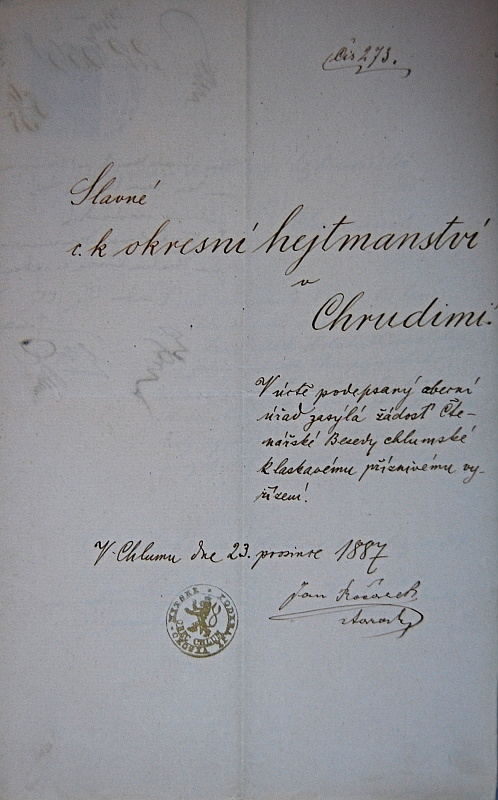 Čís 273.
Slavné
c. k okresní hejtmanství
v
Chrudimi.
V úctě podepsaný obecní
úřad zasýlá žádosť Čte-
nářské Besedy chlumské
k laskavému příznivému vy-
řízení!
V Chlumu dne 23. prosince 1887
Jan
starosta
OBEC CHLUM